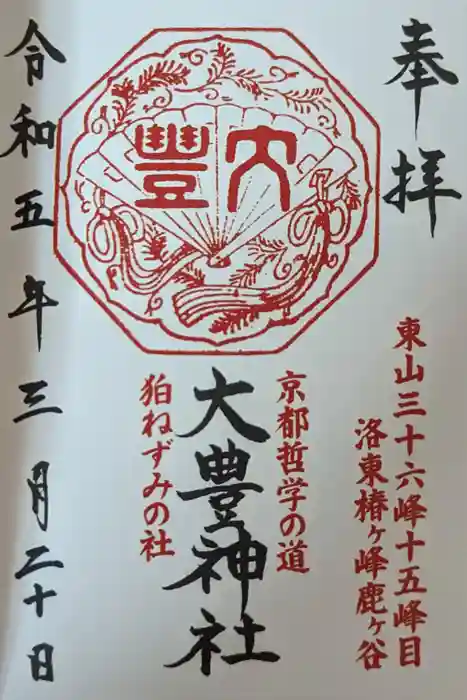 奉拝
東山三十六峰十五峰目
洛東椿ヶ峰鹿ヶ谷
大豐
京都哲学の道
大豊神社
狛ねずみの社
令和五年三月二十日